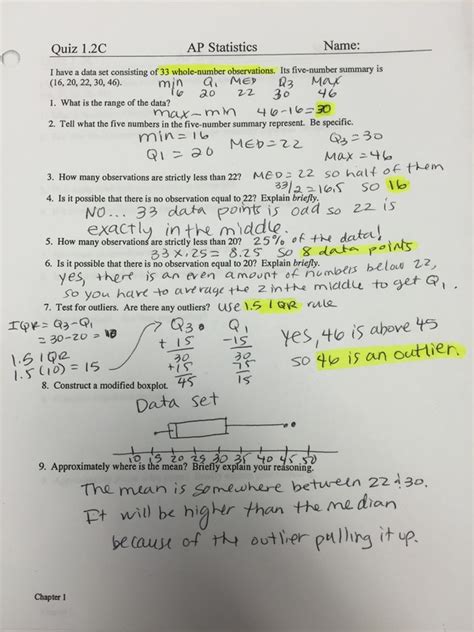 Quiz 1.2C AP Statistics Name:
I have a data set consisting of 33 whole-number observations. Its five-number summary is
(16, 20, 22, 30, 46). min Q1 MED Q3 Max
16 20 22 30 46
1. What is the range of the data?
max - min 46-16=30
2. Tell what the five numbers in the five-number summary represent. Be specific.
min = 16 MED = 22 Q3 = 30
Q1 = 20 Max = 46
3. How many observations are strictly less than 22? MED = 22 so half of them
33/2 = 16.5 so 16
4. Is it possible that there is no observation equal to 22? Explain briefly.
NO... 33 data points is odd so 22 is
exactly in the middle.
5. How many observations are strictly less than 20? 25% of the data!
33 x .25 = 8.25 so 8 data points
6. Is it possible that there is no observation equal to 20? Explain briefly.
yes, there is an even amount of numbers below 22,
so you have to average the 2 in the middle to get Q1.
7. Test for outliers. Are there any outliers? Use 1.5 IQR rule
IQR = Q3-Q1
= 30-20 = 10
1.5 IQR
1.5 (10) = 15
Q3
+ 15
30
+15
45
Q1
-15
30
15
15
yes, 46 is above 45
so 46 is an outlier.
8. Construct a modified boxplot.
Data set
10 15 20 25 30 35 40 45 50
9. Approximately where is the mean? Briefly explain your reasoning.
The mean is somewhere between 22 & 30.
It will be higher than the median
because of the outlier pulling it up.
Chapter 1